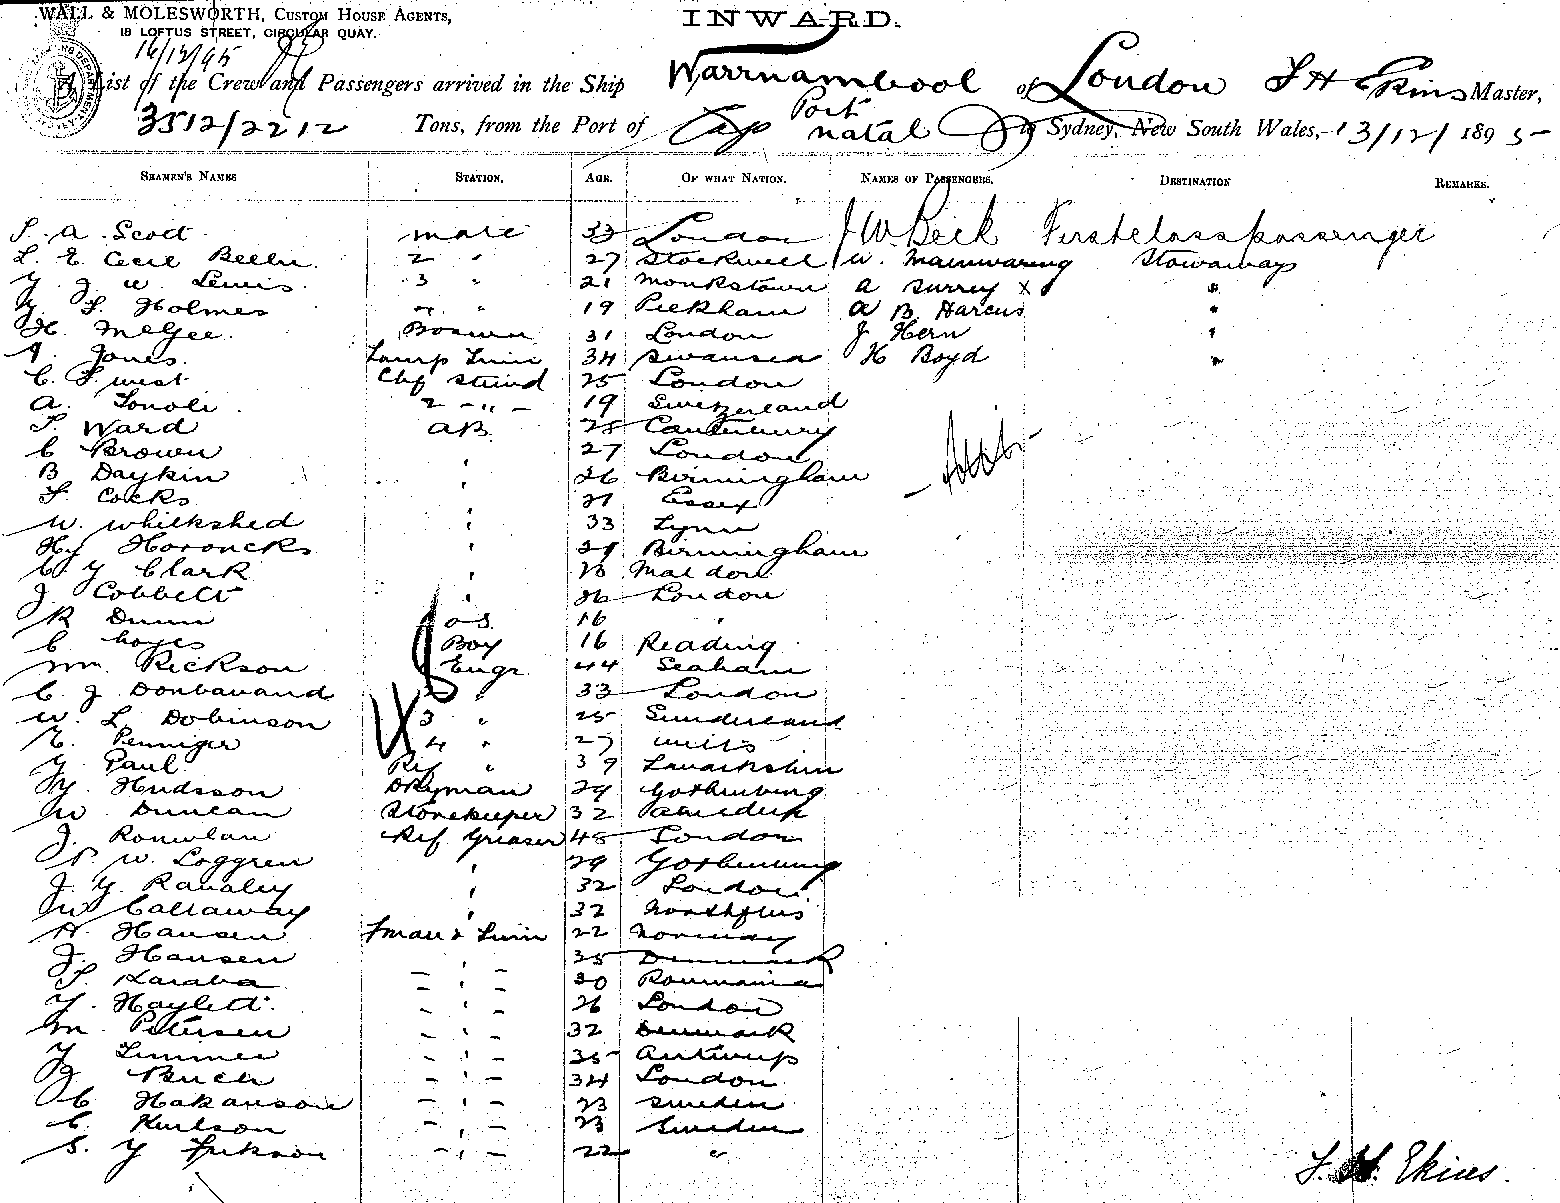 WALL & MOLESWORTH, CUSTOM HOUSE AGENTS,
18 LOFTUS STREET, CIRCULAR QUAY.
INWARD.
16/12/95
A List of the Crew and Passengers arrived in the Ship Warrnambool of London F H Ekins Master,
3512/2212 Tons, from the Port of Port natal to Sydney, New South Wales, 13/12/1895
SEAMEN'S NAMES STATION. AGE. OF WHAT NATION. NAMES OF PASSENGERS. DESTINATION REMARKS.
S. A. Scott mate 33 London J W Beck First class passenger
L. E Cecil 2 " 27 Stockwell W. Mainwaring Stowaway
J W Lewis 3 " 21 Monkstown A Surrey x "
Holmes 4 " 19 Peckham A B Harcus "
H. McGee Bosun 31 London J Hern "
Jones Lamp Trim 34 Swansea H Boyd "
C. F West Chf Stewd 25 London
A. 2 - " - 19 Switzerland
Ward AB 28 Canterbury
C Brown " 27 London
B Daykin " 26 Birmingham
F Cocks " 21 Essex
W. " 33 Lynn
Hy Horoncks " Birmingham
C Y Clark " Maldon
J Cobbett " 26 London
R Dunn O.S. 16 "
C Boy 16 Reading
Wm Rickson Engr 44 Seaham
C. J Donbavand 2 " 33 London
W. L Dobinson 3 " 25 Sunderland
Penniger 4 " 27 Wilts
Paul Ref " 39 Lanarkshire
Hudsson Dkyman 29 Gothenburg
W Duncan Storekeeper 32
J. Ref Greaser 48 London
W. Loggren " 29 Gothenburg
J. Y. " 32 London
W Callaway " 32 Northfleet
H Hansen Fman & Trim 22 Norway
J. Hansen - " - 35 Denmark
Karaba - " - 30 Roumania
Haylett - " - 26 London
M Petersen - " - 32 Denmark
- " - 35 Antwerp
- " - 34 London
C Hakanson - " - 23 Sweden
C. - " - 23 Sweden
S. Y - " - 22 "
F. H. Ekins.